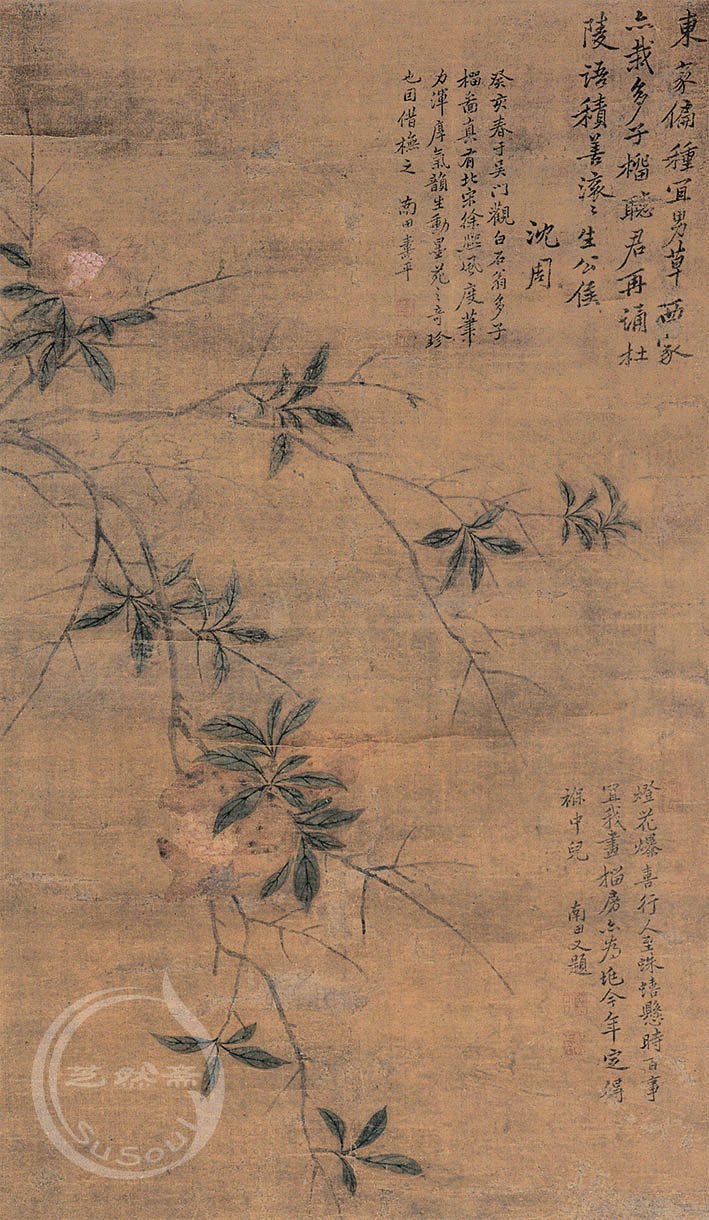 東家偏種宜男草西家
亦栽多子榴聽君再誦杜
陵語積善滾〻生公侯
沈周
癸亥春于吳門觀白石翁多子
榴圖真有北宋徐熙風度筆
力渾厚氣韻生動墨苑之奇珍
也因借橅之 南田壽平
燈花爆喜行人至蛛蟢懸時百事
宜我畫榴房亦為兆今年定得
褓中兒 南田又題
芝然斋
SuSoul